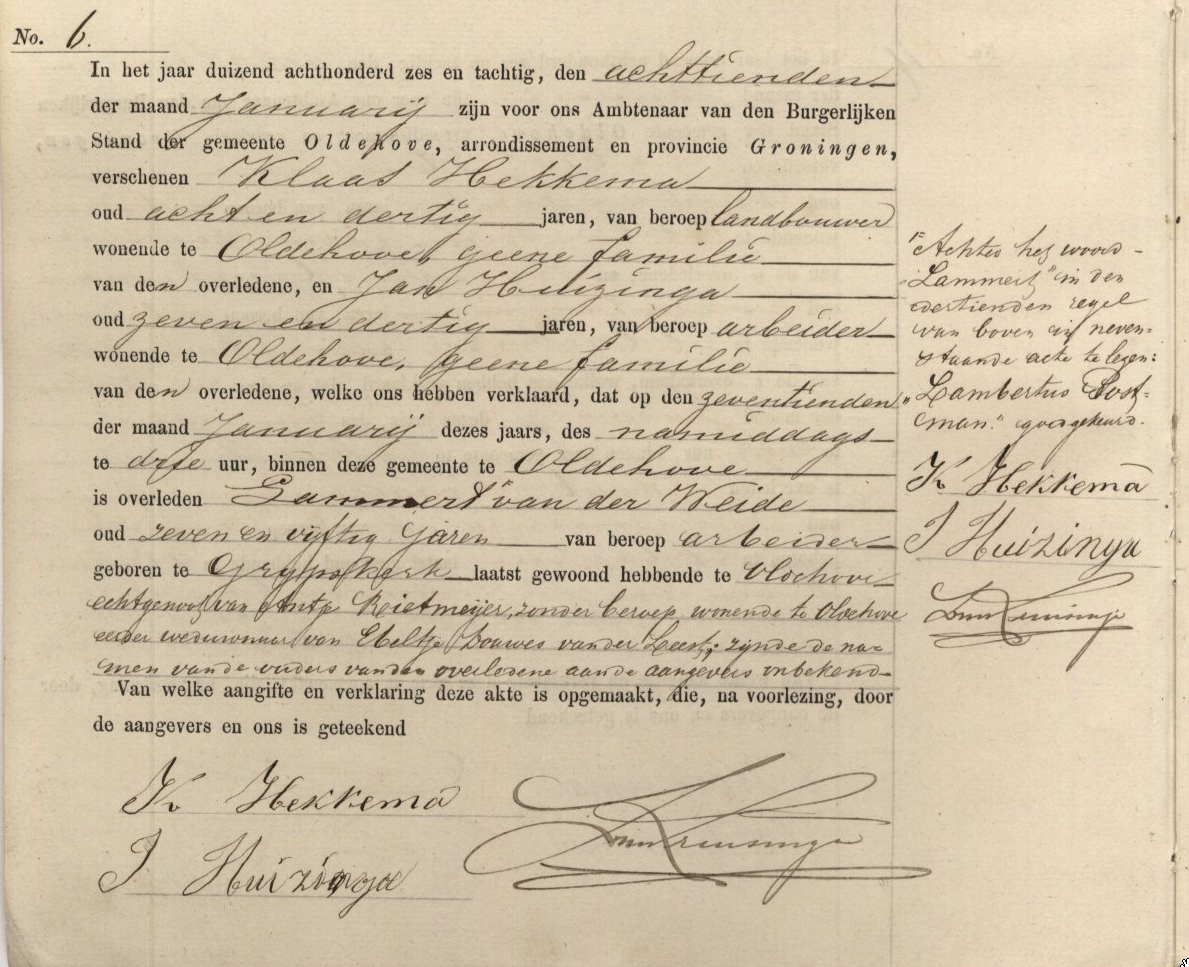 No. 6.
In het jaar duizend achthonderd zes en tachtig, den achttienden
der maand Januarij zijn voor ons Ambtenaar van den Burgerlijken
Stand der gemeente Oldehove, arrondissement en provincie Groningen,
verschenen Klaas Hekkema
oud acht en dertig jaren, van beroep landbouwer
wonende te Oldehove, geene familie
van den overledene, en Jan Huizinga
oud zeven en dertig jaren, van beroep arbeider
wonende te Oldehove, geene familie
van den overledene, welke ons hebben verklaard, dat op den zeventienden
der maand Januarij dezes jaars, des namiddags
te drie uur, binnen deze gemeente te Oldehove
is overleden Lammert van der Weide
oud zeven en vijftig jaren van beroep arbeider
geboren te Grijpskerk laatst gewoond hebbende te Oldehove
echtgenoot van Antje Rietmeijer, zonder beroep, wonende te Oldehove
eerder weduwnaar van Eeltje Douwes van der Leest; zijnde de na=
men van de ouders van den overledene aan de aangevers onbekend
Van welke aangifte en verklaring deze akte is opgemaakt, die, na voorlezing, door
de aangevers en ons is geteekend
K. Hekkema
J. Huizinga
"Achter het woord
"Lammert" in den
dertienden regel
van boven in neven=
staande acte te lezen:
"Lambertus Post=
man." goedgekeurd.
K. Hekkema
J Huizinga